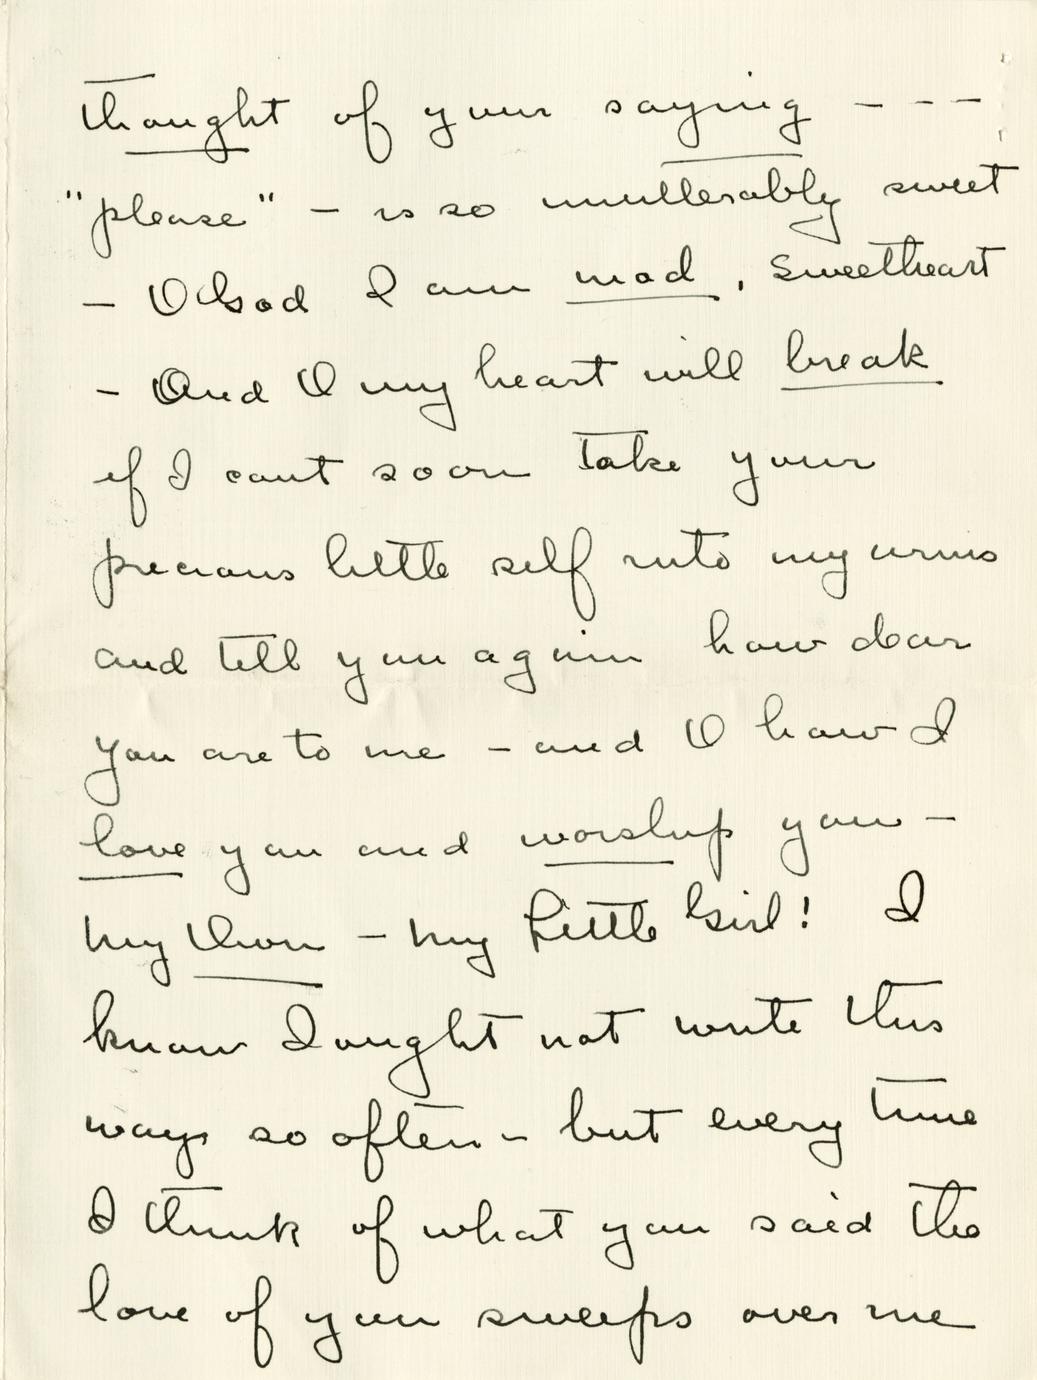 thought of your saying - - -
"please" - is so unutterably sweet
- O God I am mad, sweetheart
- And O my heart will break
if I cant soon take your
precious little self into my arms
and tell you again how dear
you are to me - and O how I
love you and worship you -
My Own - My Little Girl! I
know I ought not write this
ways so often - but every time
I think of what you said the
love of you sweeps over me